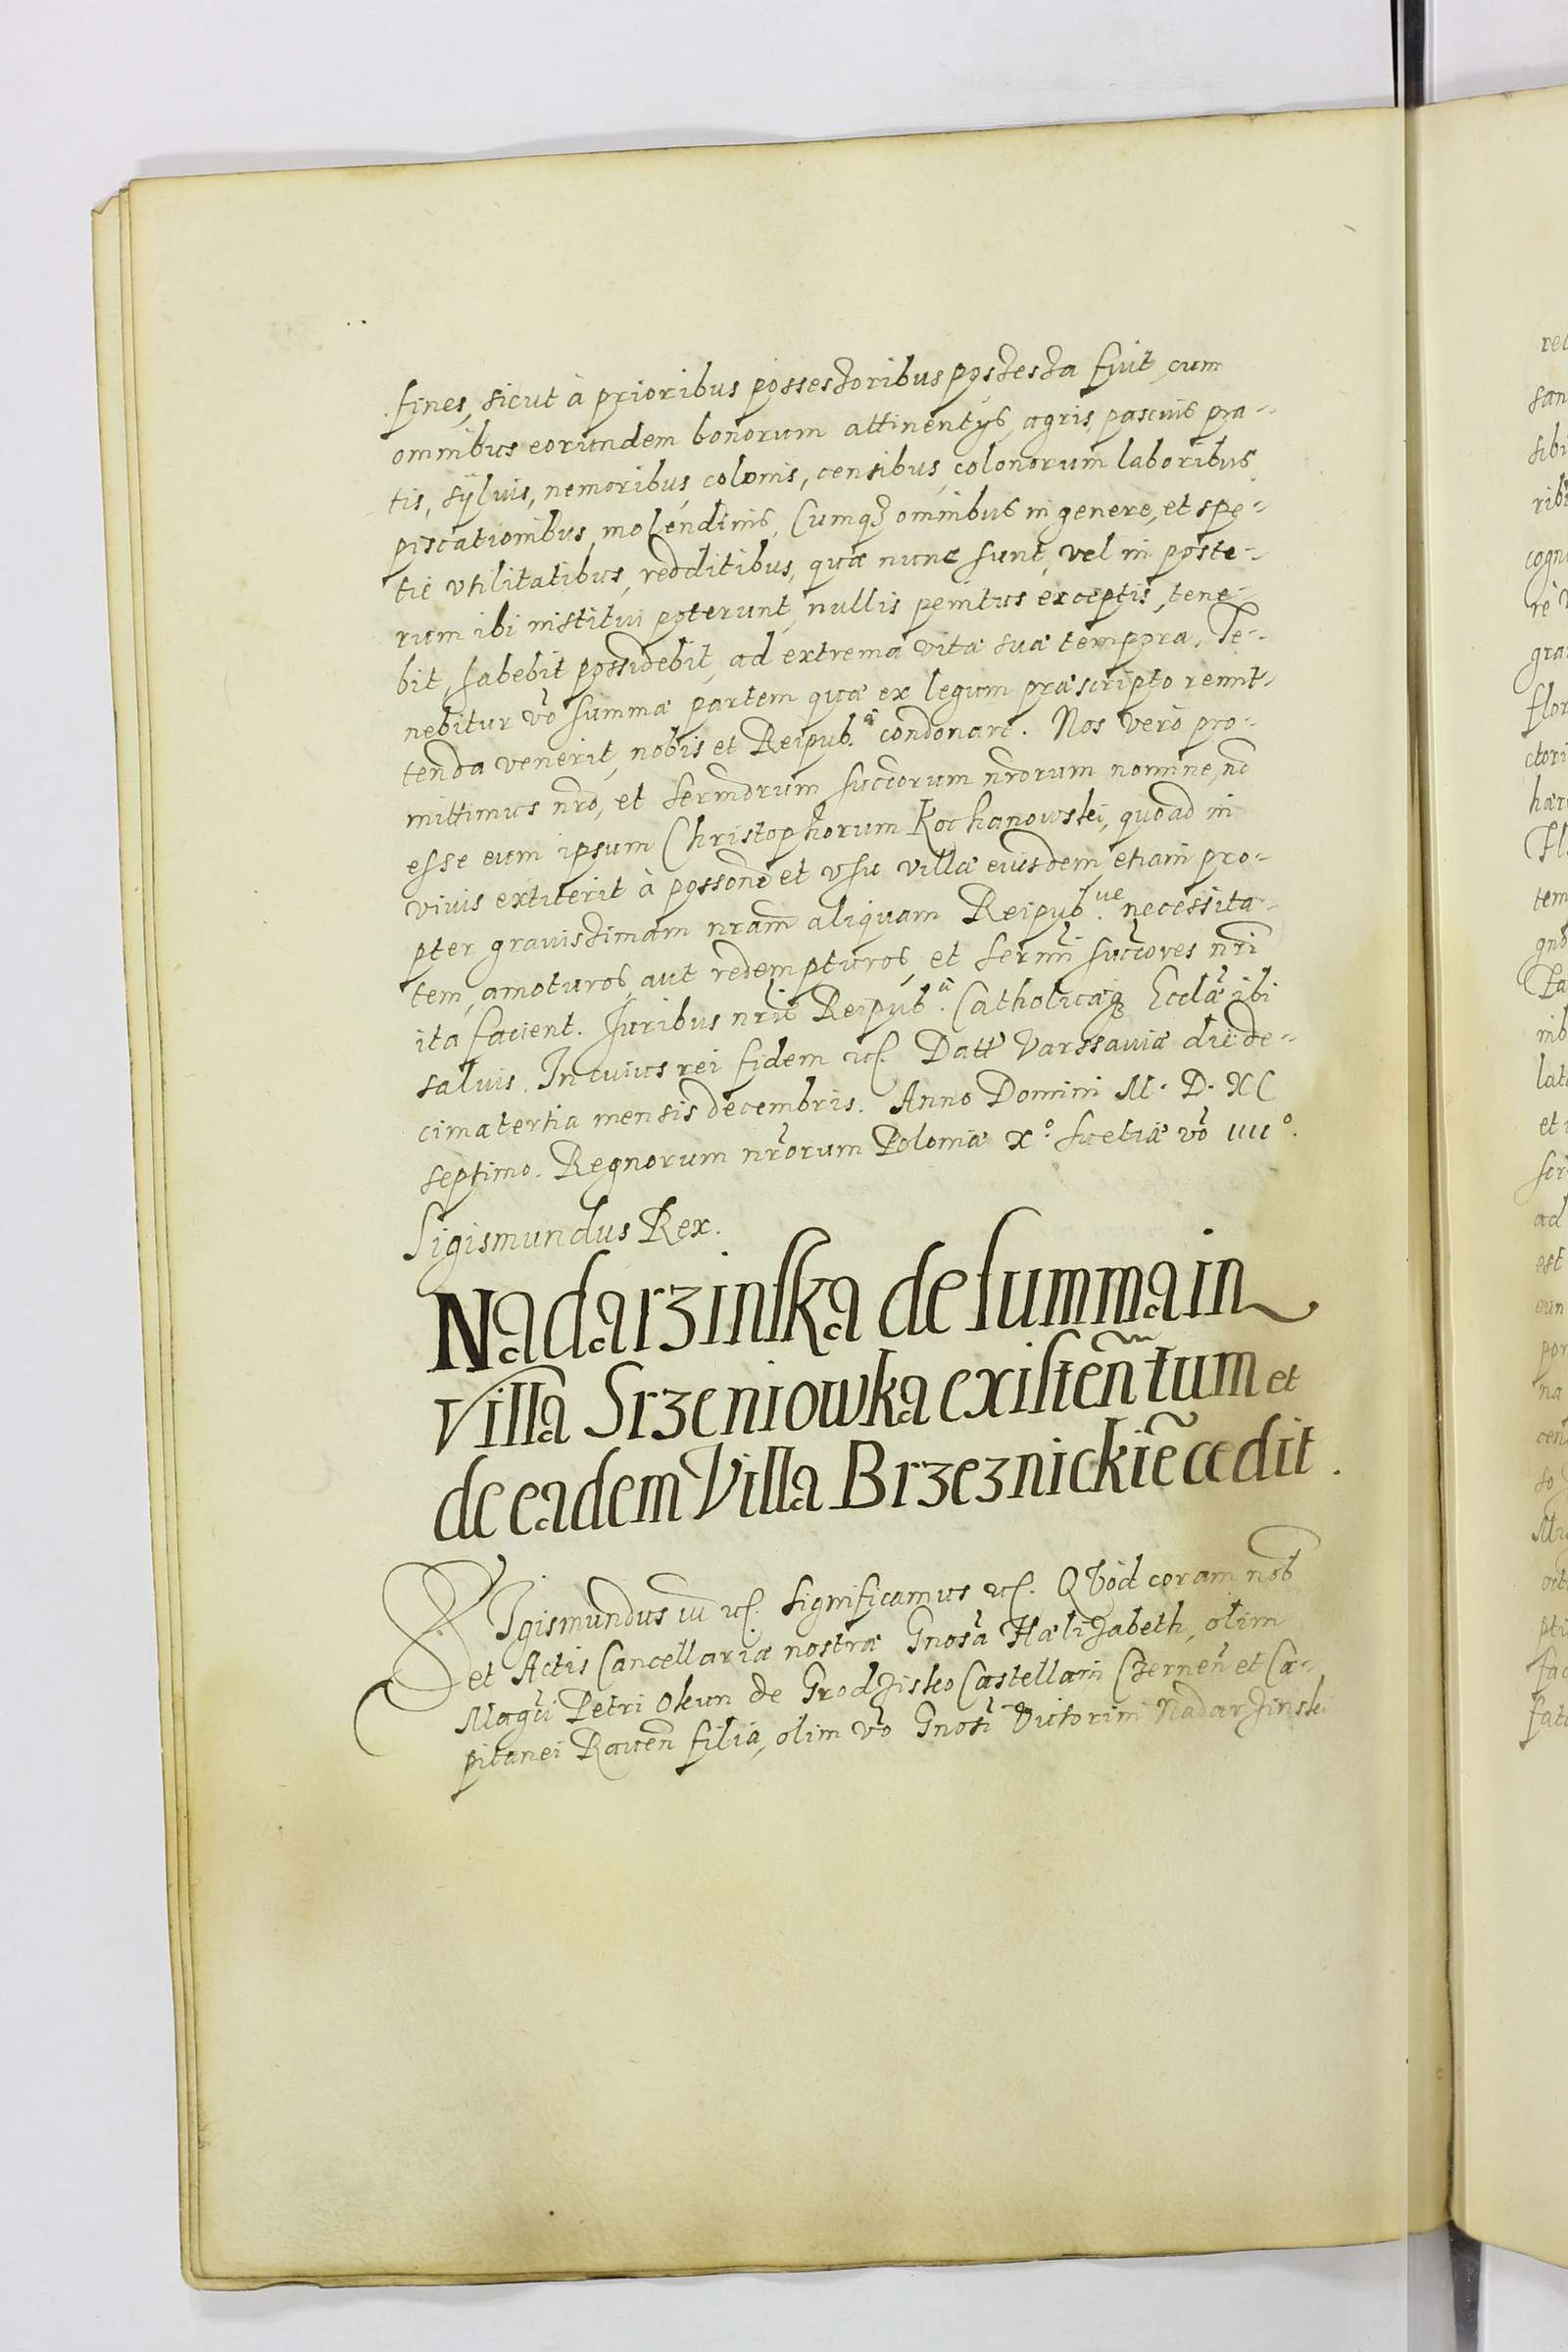 fines, sicut à prioribus possessoribus possessa fuit, cum
omnibus eorundem bonorum attinentÿs, agris, pascuis, pra-
tis, sÿluis, nemoribus, colonis, censibus, colonorum laboribus,
piscationibus, molendinis, Cumqꝫ omnibus in genere, et spe-
tie vtilitatibus, redditibus, quæ nunc sunt, vel in poste-
rum ibi institui poterunt, nullis penitus exceptis, tene-
bit, habebit possidebit, ad extrema vitæ suæ tempora. Te-
nebitur vō summæ partem quæ ex legum præscripto remit-
tenda venerit, nobis et Reipub. condonare. Nos verò pro-
mittimus nrō, et Sermorum succorum nrōrum nomine, nō
esse eum ipsum Christophorum Kochanowski, quoad in
viuis extiterit à possone et vsu villæ eiusdem, etiam pro-
pter grauissimam nram̄ aliquam Reipub.ue necessita-
tem, amoturos, aut redempturos, et Sermi succores nri
ita facient. Iuribus nris Reipub. Catholicæqꝫ Ecclæ ibi
saluis. In cuius rei fidem etc. Datt Varssauiæ die de-
cima tertia mensis decembris. Anno Domini M. D. XC
septimo. Regnorum nrorum Poloniæ X.º Suetiæ vō IIIIº.
Sigismundus Rex.
Nadarzinska de summa in
Villa Srzeniowka existen̄tum et
de eadem Villa Brzeznickiē cedit.
SIgismundus III etc. Significamus etc. QVòd coram nob
et Actis Cancellariæ nostræ Gnosa Hælizabeth, olim
Magci Petri Okun de Grodzisko Castellani Czernen̄ et Ca-
pitanei Rauen̄ filia, olim vō Gnosi Victorini Nadarzinski